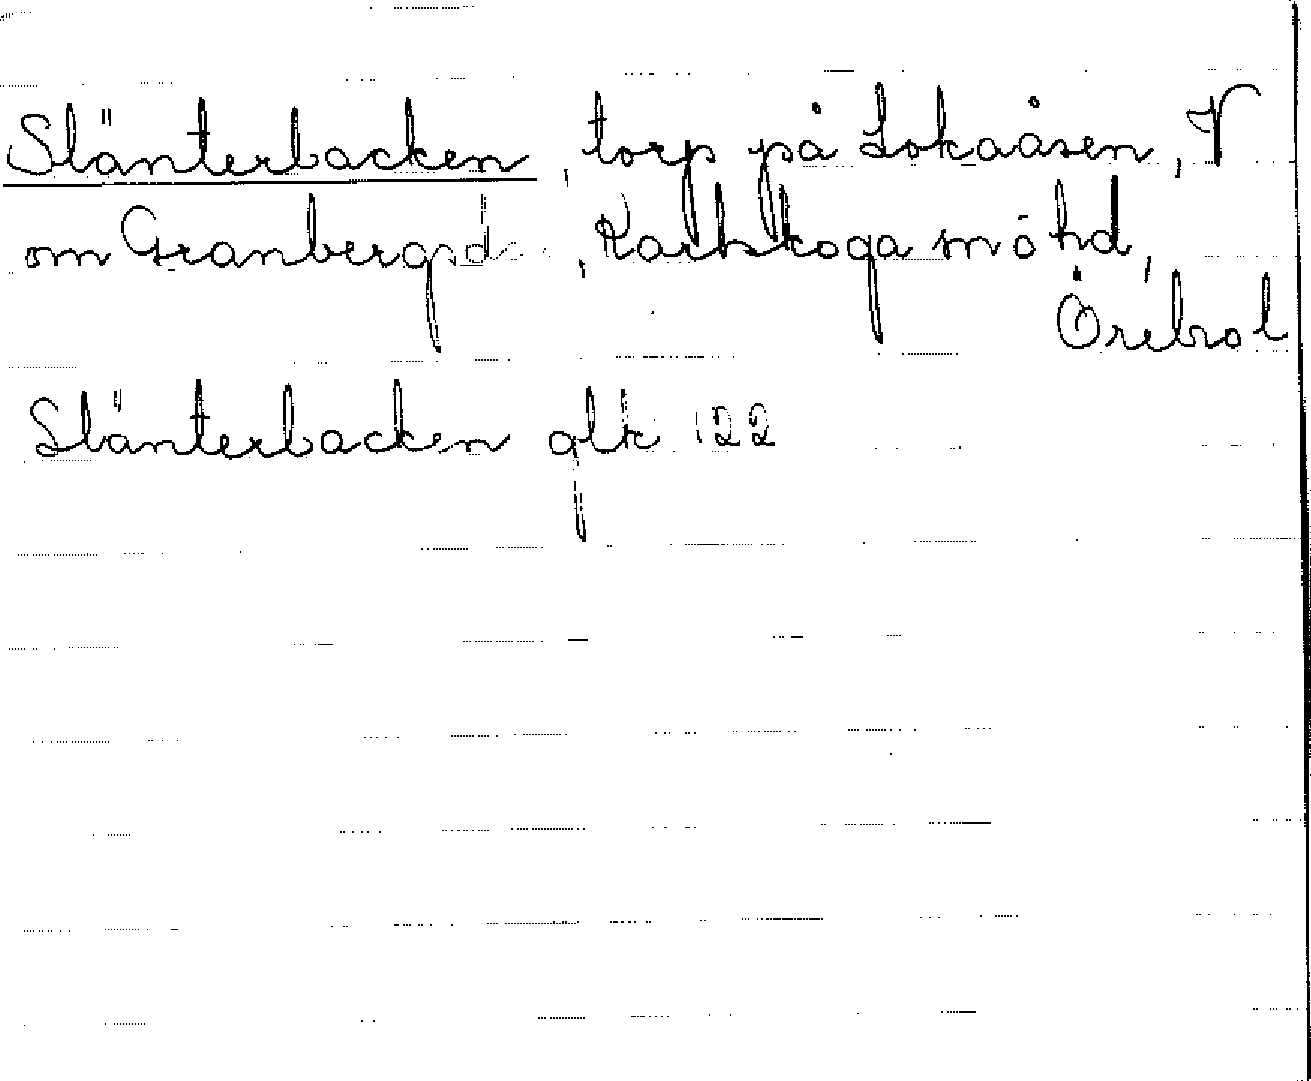 Slänterbacken, torp på Lokaåsen, V
om Granbergsda , Karlskoga sn ö hd,
Örebro l
Slänterbacken glk 122